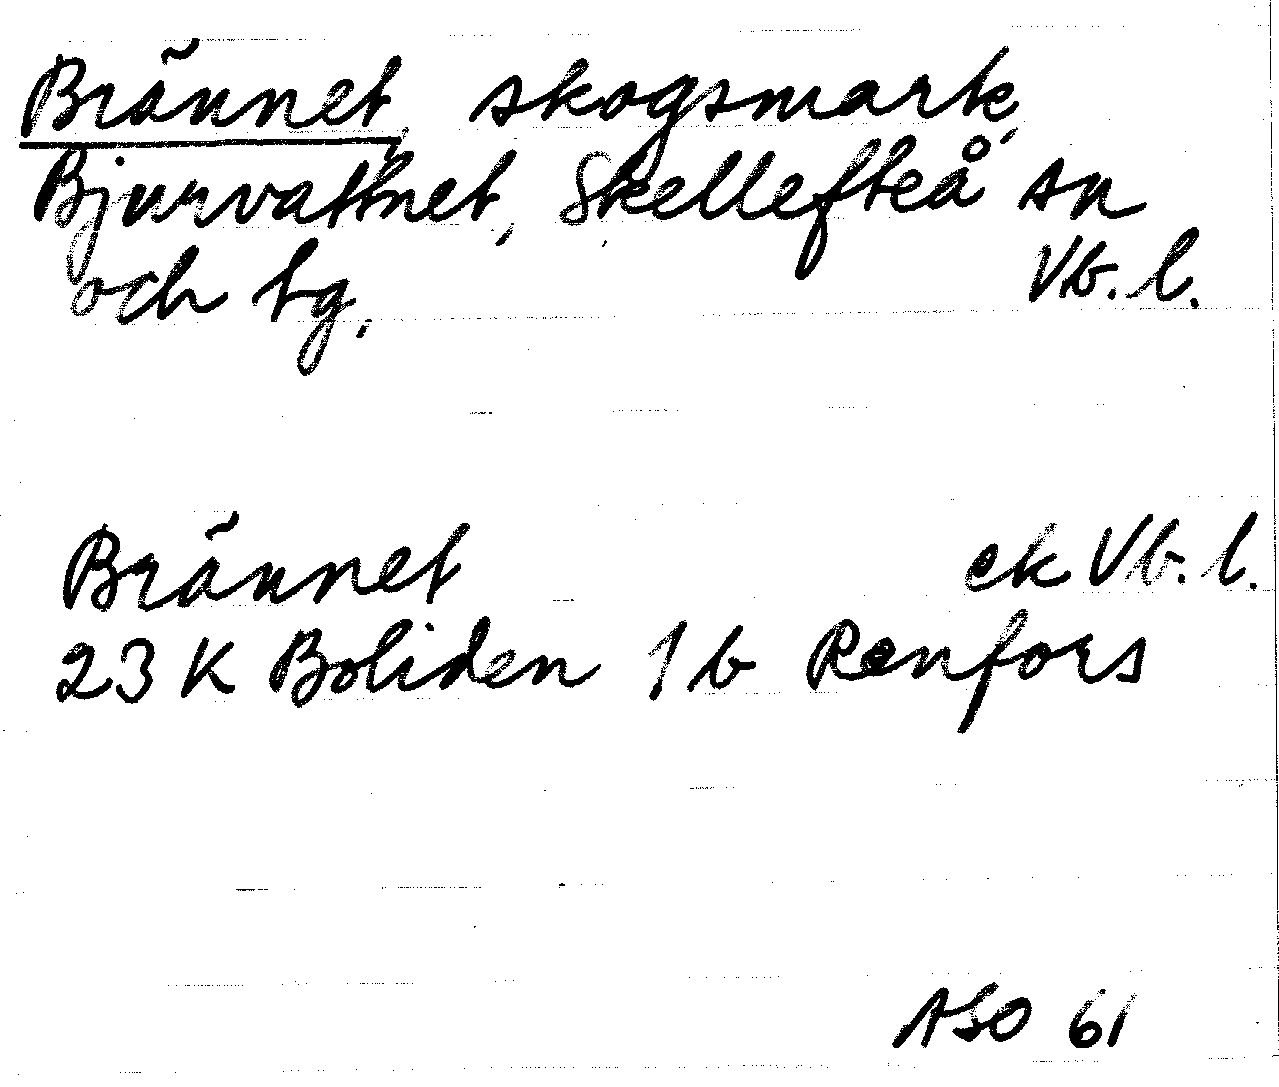 Brännet, skogsmark,
Bjurvattnet, Skellefteå sn
och tg, Vb. l.
Brännet ek Vb. l.
23 K Boliden 1 b Renfors
ASO 61